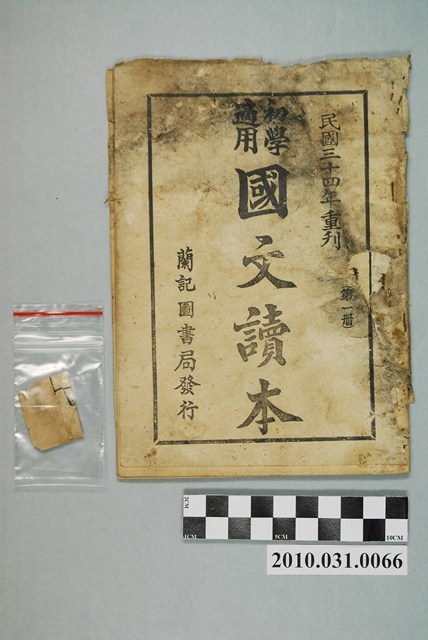 民國三十四年重刊
第一册
初學
適用
國文讀本
蘭記圖書局發行
2CM
1CM
5CM
10CM
2010.031.0066